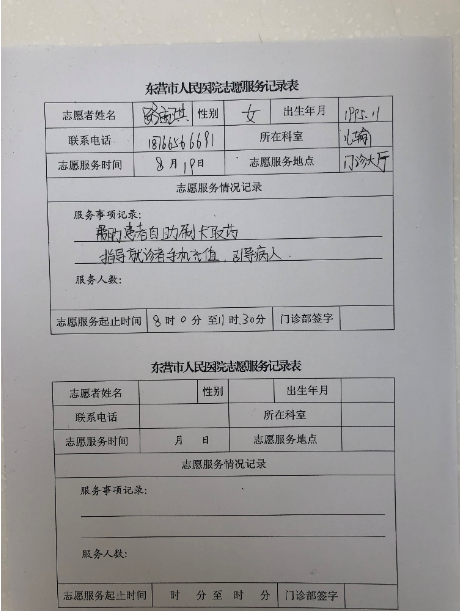 东营市人民医院志愿服务记录表
志愿者姓名 性别 女 出生年月 1995.11
联系电话 18766566691 所在科室 心输
志愿服务时间 8月19日 志愿服务地点 门诊大厅
志愿服务情况记录
服务事项记录:
帮助患者自助刷卡取药
指导就诊者手机充值,引导病人.
服务人数:
志愿服务起止时间 8时0分至11时30分 门诊部签字
东营市人民医院志愿服务记录表
志愿者姓名 性别 出生年月
联系电话 所在科室
志愿服务时间 月 日 志愿服务地点
志愿服务情况记录
服务事项记录:
服务人数:
志愿服务起止时间 时 分至 时 分 门诊部签字